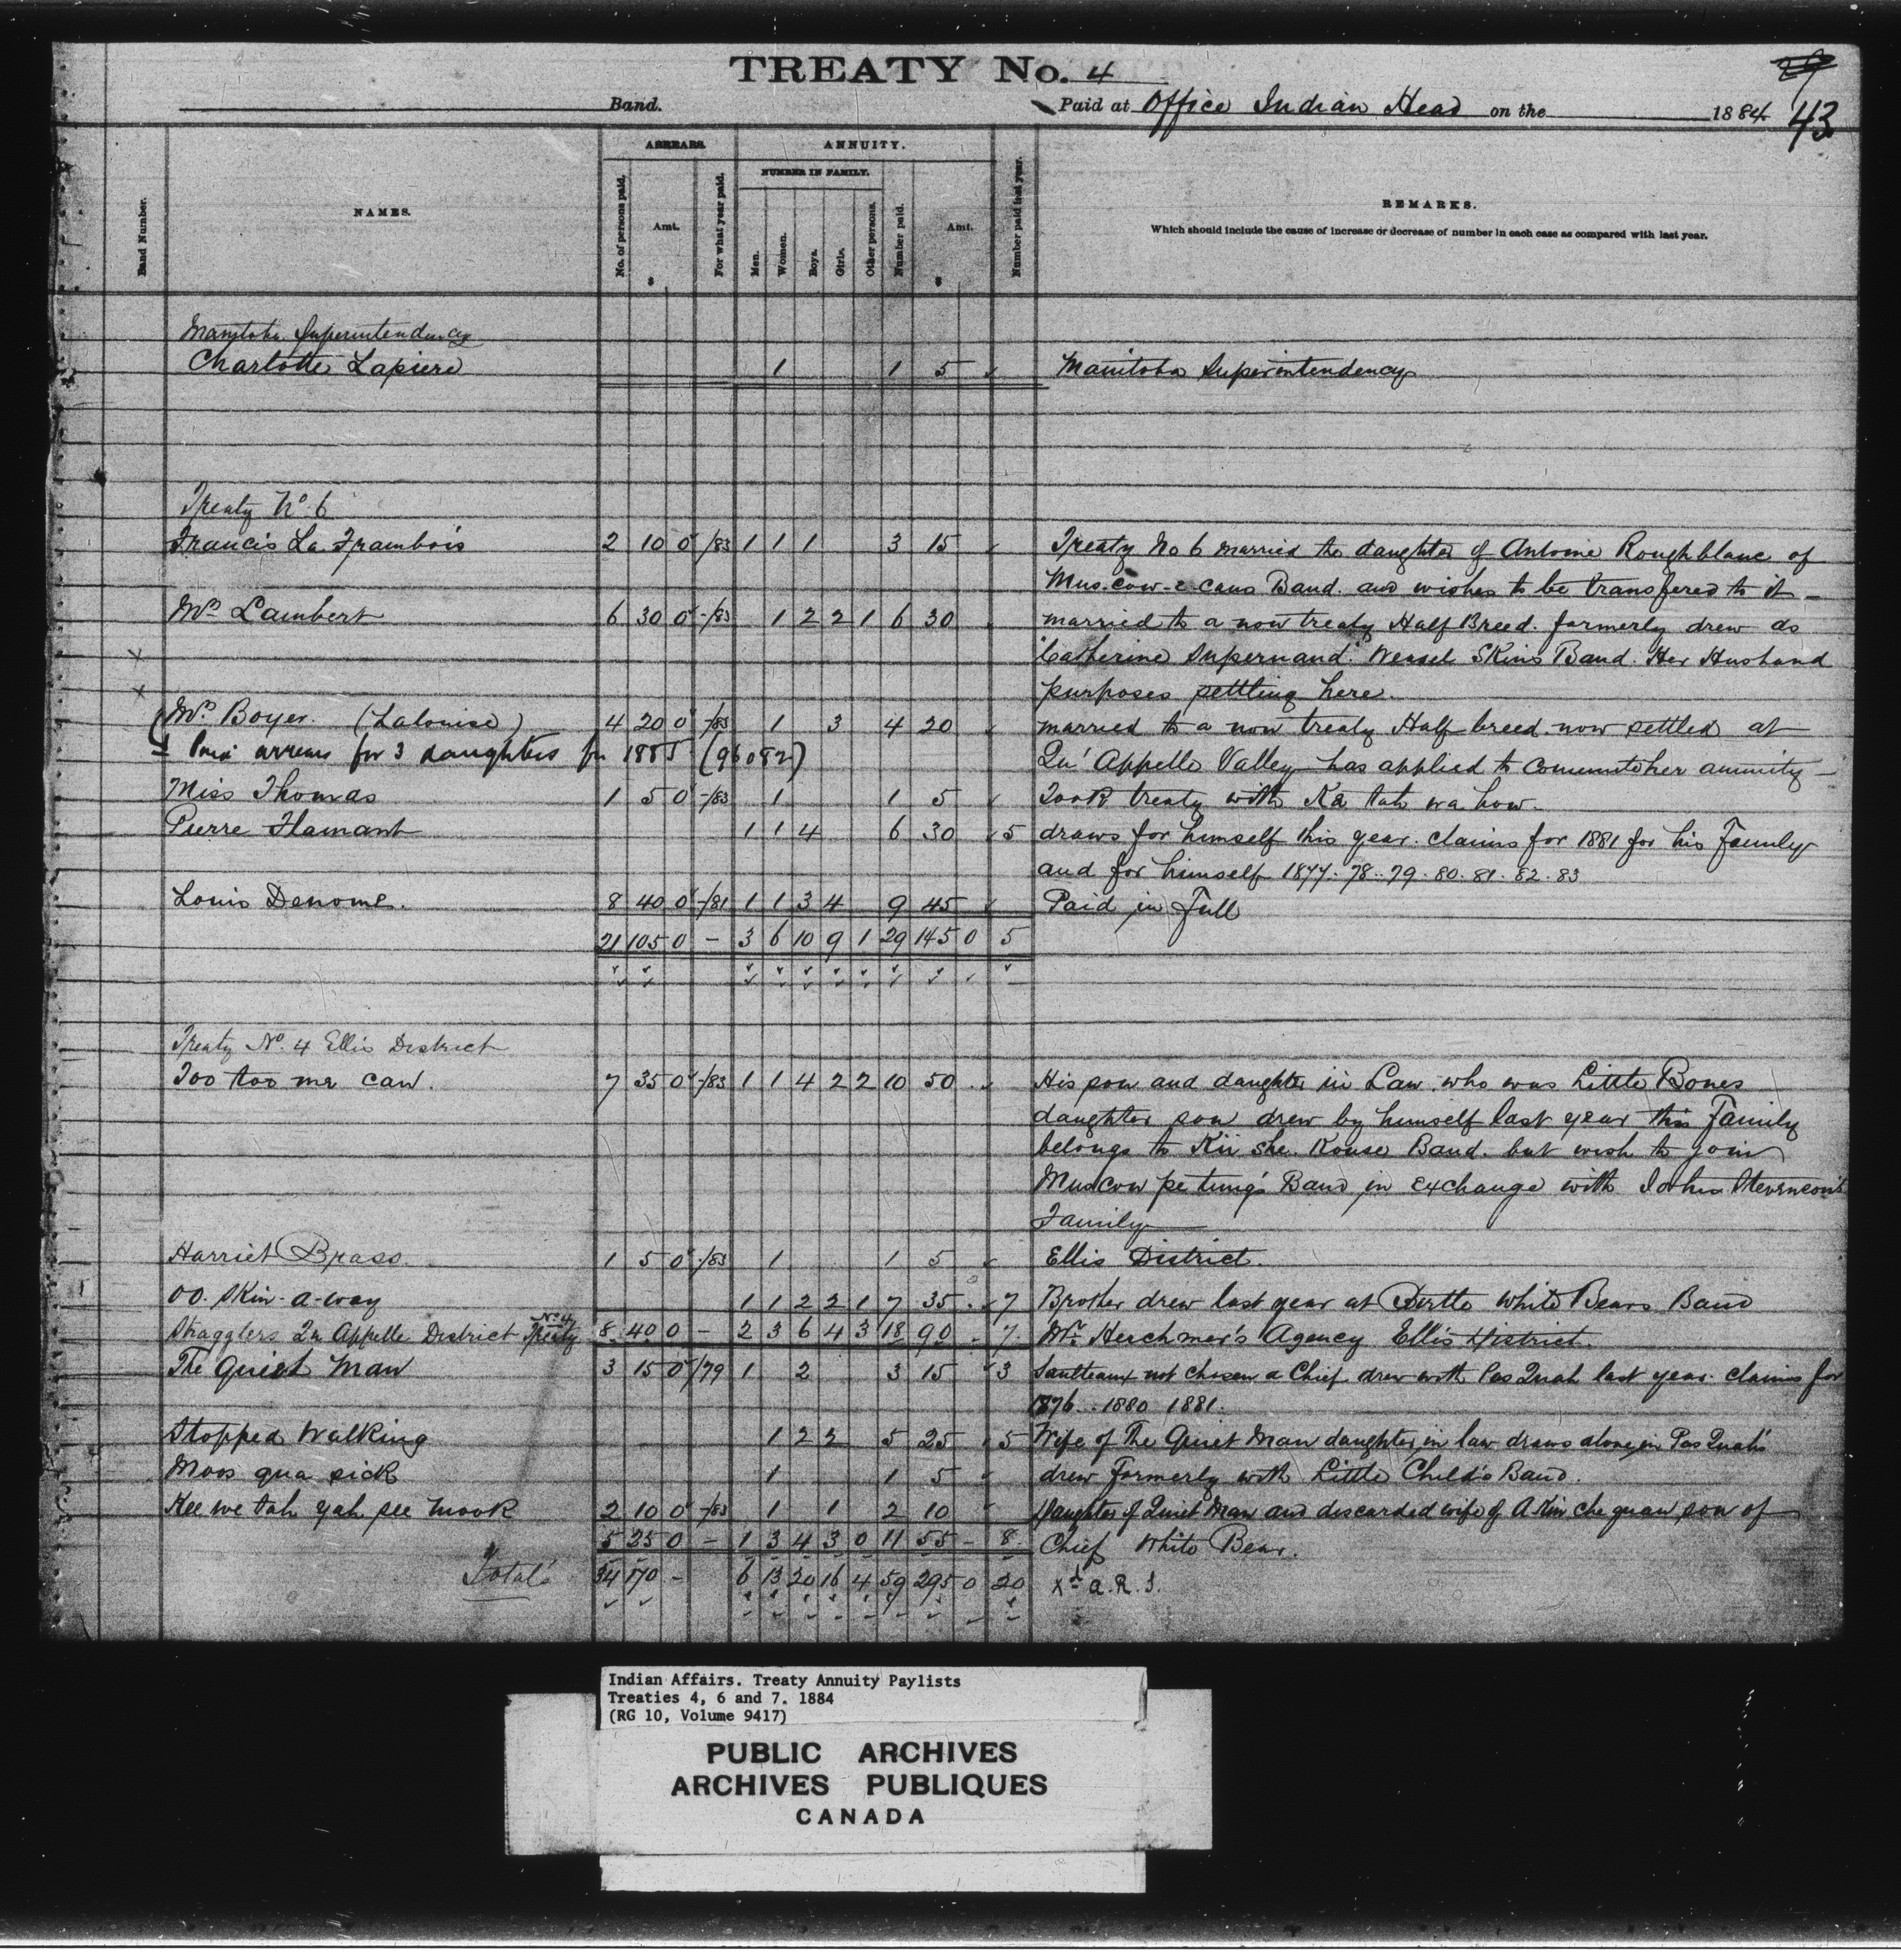 TREATY No. 4
29
Band. Paid at Office Indian Head on the 1884 43
Band Number.
NAMES.
ARREARS.
No. of persons paid.
Amt.
$
For what year paid.
ANNUITY.
NUMBER IN FAMILY.
Men.
Women.
Boys.
Girls.
Other persons.
Number paid.
Amt.
$
Number paid last year.
REMARKS.
Which should include the cause of increase or decrease of number in each case as compared with last year.
Manitoba Superintendency
Charlotte Lapiere 1 1 5 Manitoba Superintendency
Treaty No. 6
Francis La Frambois 2 10 0 /83 1 1 1 3 15 Treaty No 6 married the daughter of Antoine Roughblanc of
Mus-cow-e-cans Band. and wishes to be transfered to it -
Mrs Lambert 6 30 0 -/83 1 2 2 1 6 30 married to a non treaty Half Breed. formerly drew as
Catherine Supernand. Weasel Skins Band. Her Husband
purposes settling here.
Mrs. Boyer. (Lalouise) 4 20 0 -/83 1 3 4 20 married to a non treaty Half breed now settled at
± Paid arrears for 3 daughters for 1885 (96082) Qu'Appelle Valley has applied to commute her annuity -
Miss Thomas 1 5 0 -/83 1 1 5 Took treaty with Ka tah wa how.
Pierre Flamant 1 1 4 6 30 5 draws for himself this year. claims for 1881 for his Family
and for himself 1877. 78. 79. 80. 81. 82. 83
Louis Denome. 8 40 0 -/81 1 1 3 4 9 45 Paid in Full
21 105 0 - 3 6 10 9 1 29 145 0 5
Treaty No. 4 Ellis District
Too too me caw. 7 35 0 -/83 1 1 4 2 2 10 50 His son and daughter in Law who was Little Bones
daughter son drew by himself last year this Family
belongs to Kii she. Kouse Band. but wish to join
Muscow pe tung's Band in exchange with John Stevenson's
Family
Harriet Brass. 1 5 0 -/83 1 1 5 Ellis District.
OO. Skin-a-way 1 1 2 2 1 7 35 7 Brother drew last year at Birtle White Bears Band
Stragglers Qu Appelle District Treaty No. 4 8 40 0 - 2 3 6 4 3 18 90 - 7 Mr. Herchmer's Agency Ellis District.
The Quiet Man 3 15 0 /79 1 2 3 15 3 Saulteaux not chosen a Chief drew with Pas Quah last year. claims for
1876. 1880 1881.
Stopped Walking 1 2 2 5 25 5 Wife of The Quiet Man daughter in law draws alone in Pas Quah's
Moos qua sick 1 1 5 drew formerly with Little Child's Band.
Kee we tah yah see mook 2 10 0 -/83 1 1 2 10 Daughter of Quiet Man and discarded wife of A Kin che quan son of
5 25 0 - 1 3 4 3 0 11 55 - 8 Chief White Bear.
Totals 34 170 - 6 13 20 16 4 59 295 0 20 Xd A.R.J.
Indian Affairs. Treaty Annuity Paylists
Treaties 4, 6 and 7. 1884
(RG 10, Volume 9417)
PUBLIC ARCHIVES
ARCHIVES PUBLIQUES
CANADA